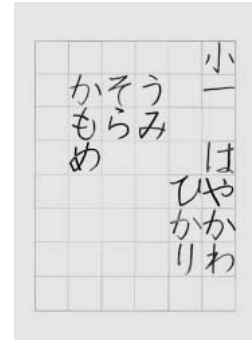 小一 はやかわ
ひかり
うみ
そら
かもめ